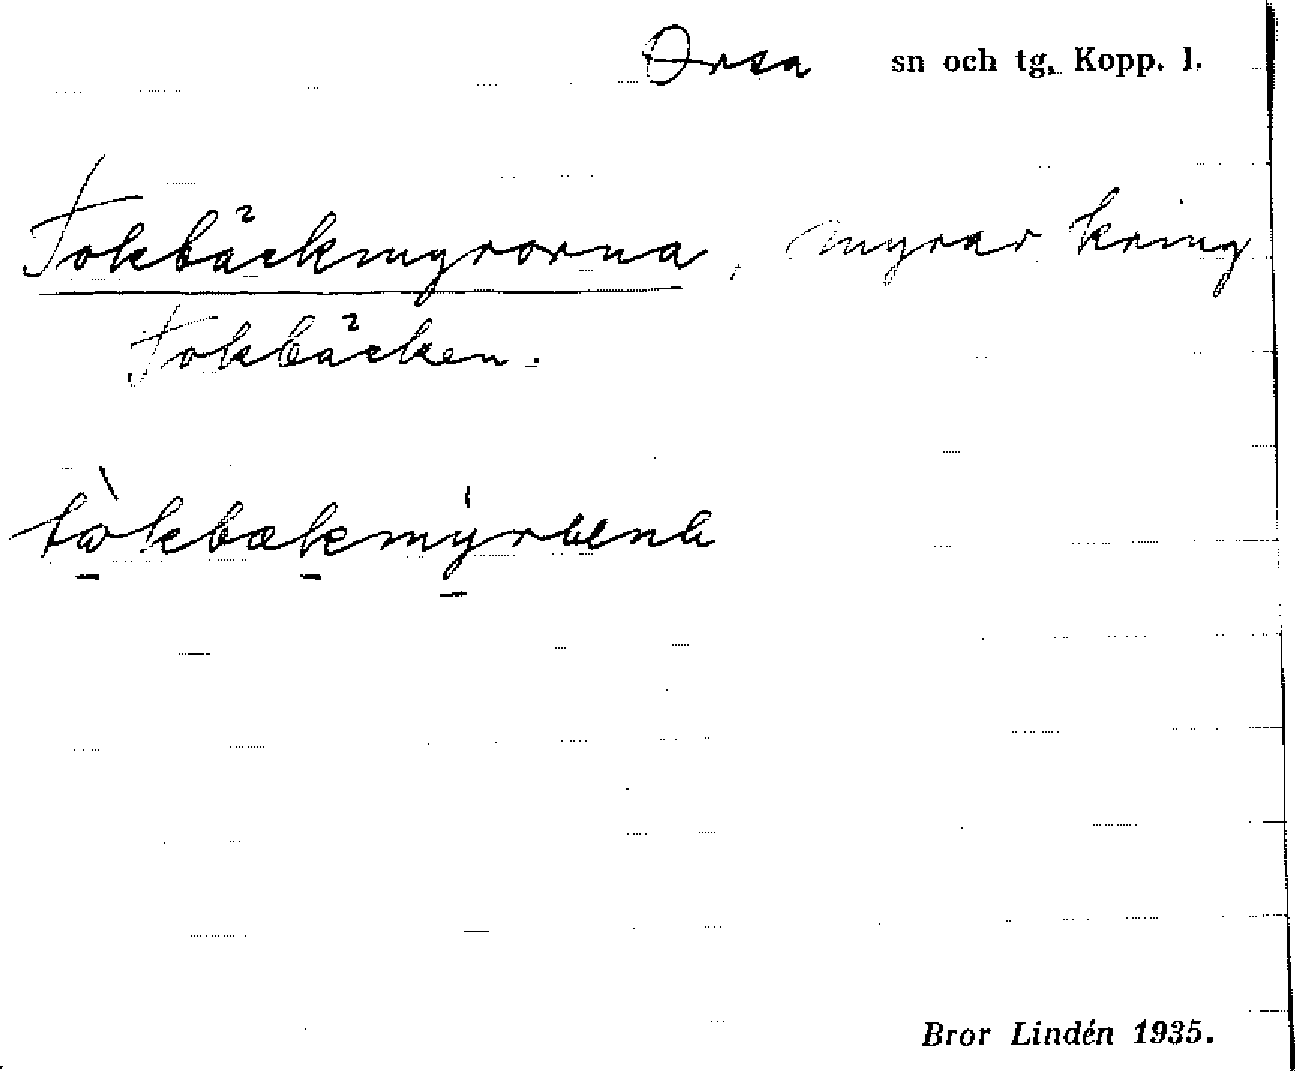 Orsa sn och tg. Kopp. l.
Tokbäckmyrorna, myrar kring
Tokbäcken.
tɷ̀kbækmýrɯnɐ
Bror Lindén 1935.